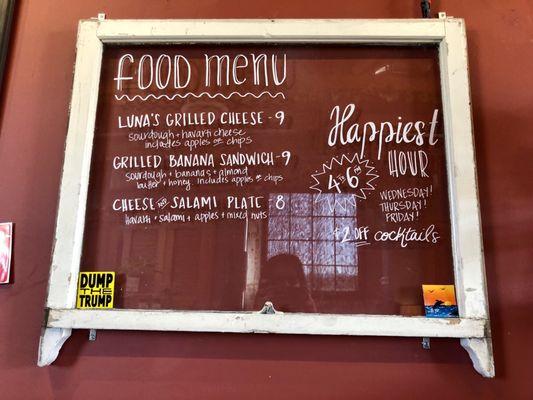 food menu
LUNA'S GRILLED CHEESE - 9
sourdough + havarti cheese
includes apples or chips
GRILLED BANANA SANDWICH - 9
sourdough + bananas + almond
butter + honey. includes apples or chips
CHEESE AND SALAMI PLATE - 8
Havarti + salami + apples + mixed nuts
Happiest
HOUR
4 to 6 PM
WEDNESDAY!
THURSDAY!
FRIDAY!
$2 OFF cocktails
DUMP
THE
TRUMP